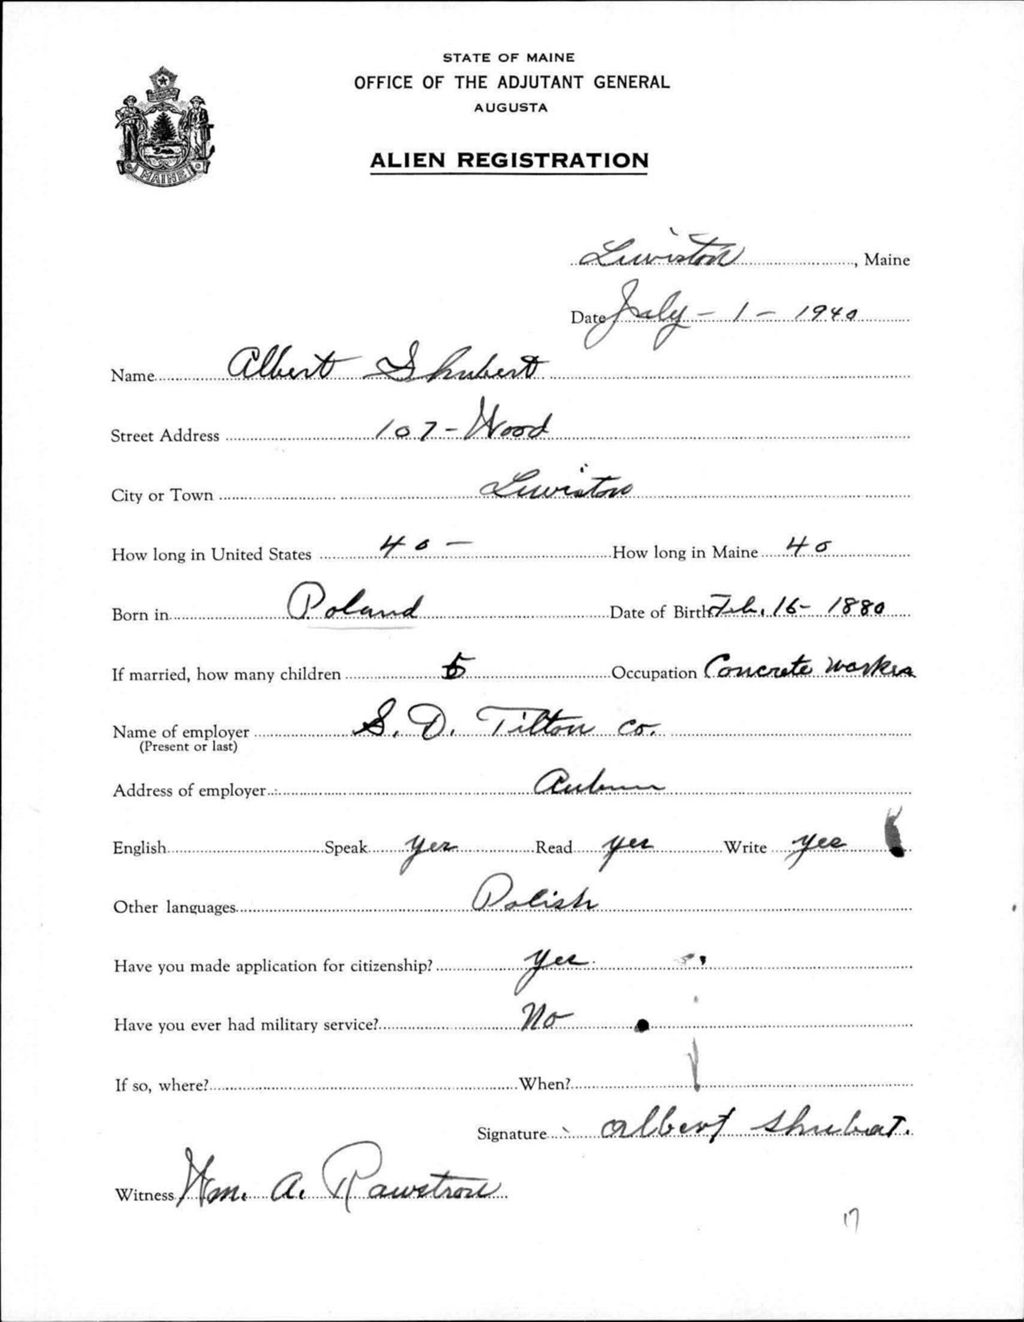 STATE OF MAINE
OFFICE OF THE ADJUTANT GENERAL
AUGUSTA
MAINE
ALIEN REGISTRATION
Lewiston, Maine
Date July - 1 - 1940
Name Albert Shubert
Street Address 107 - Wood
City or Town Lewiston
How long in United States 40 - How long in Maine 40
Born in Poland Date of Birth Feb. 16 - 1880
If married, how many children 5 Occupation Concrete worker
Name of employer S. D. Tilton Co.
(Present or last)
Address of employer Auburn
English Speak yes Read yes Write yes
Other languages Polish
Have you made application for citizenship? yes
Have you ever had military service? No
If so, where? When?
Signature Albert Shubat.
Witness Wm. A. Rawstron
17